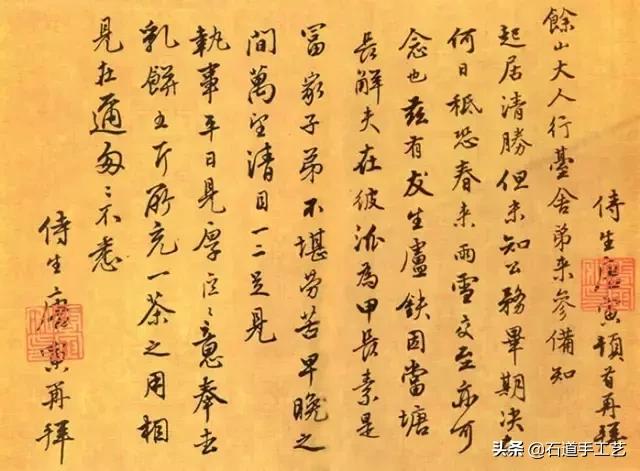 侍生唐寅頓首再拜
餘山大人行臺舍弟來參備知
起居清勝但未知公務畢期決
何日秪恐春來雨雪交至亦可
念也茲有友生盧鈇因當塘
長解夫在彼泒為甲長素是
富家子弟不堪勞苦早晚之
間萬望清目一二足見
執事平日見厚區〻意奉去
乳餅五斤所充一茶之用相
見在邇匆〻不悉
侍生唐寅再拜
头条 @石道手工艺